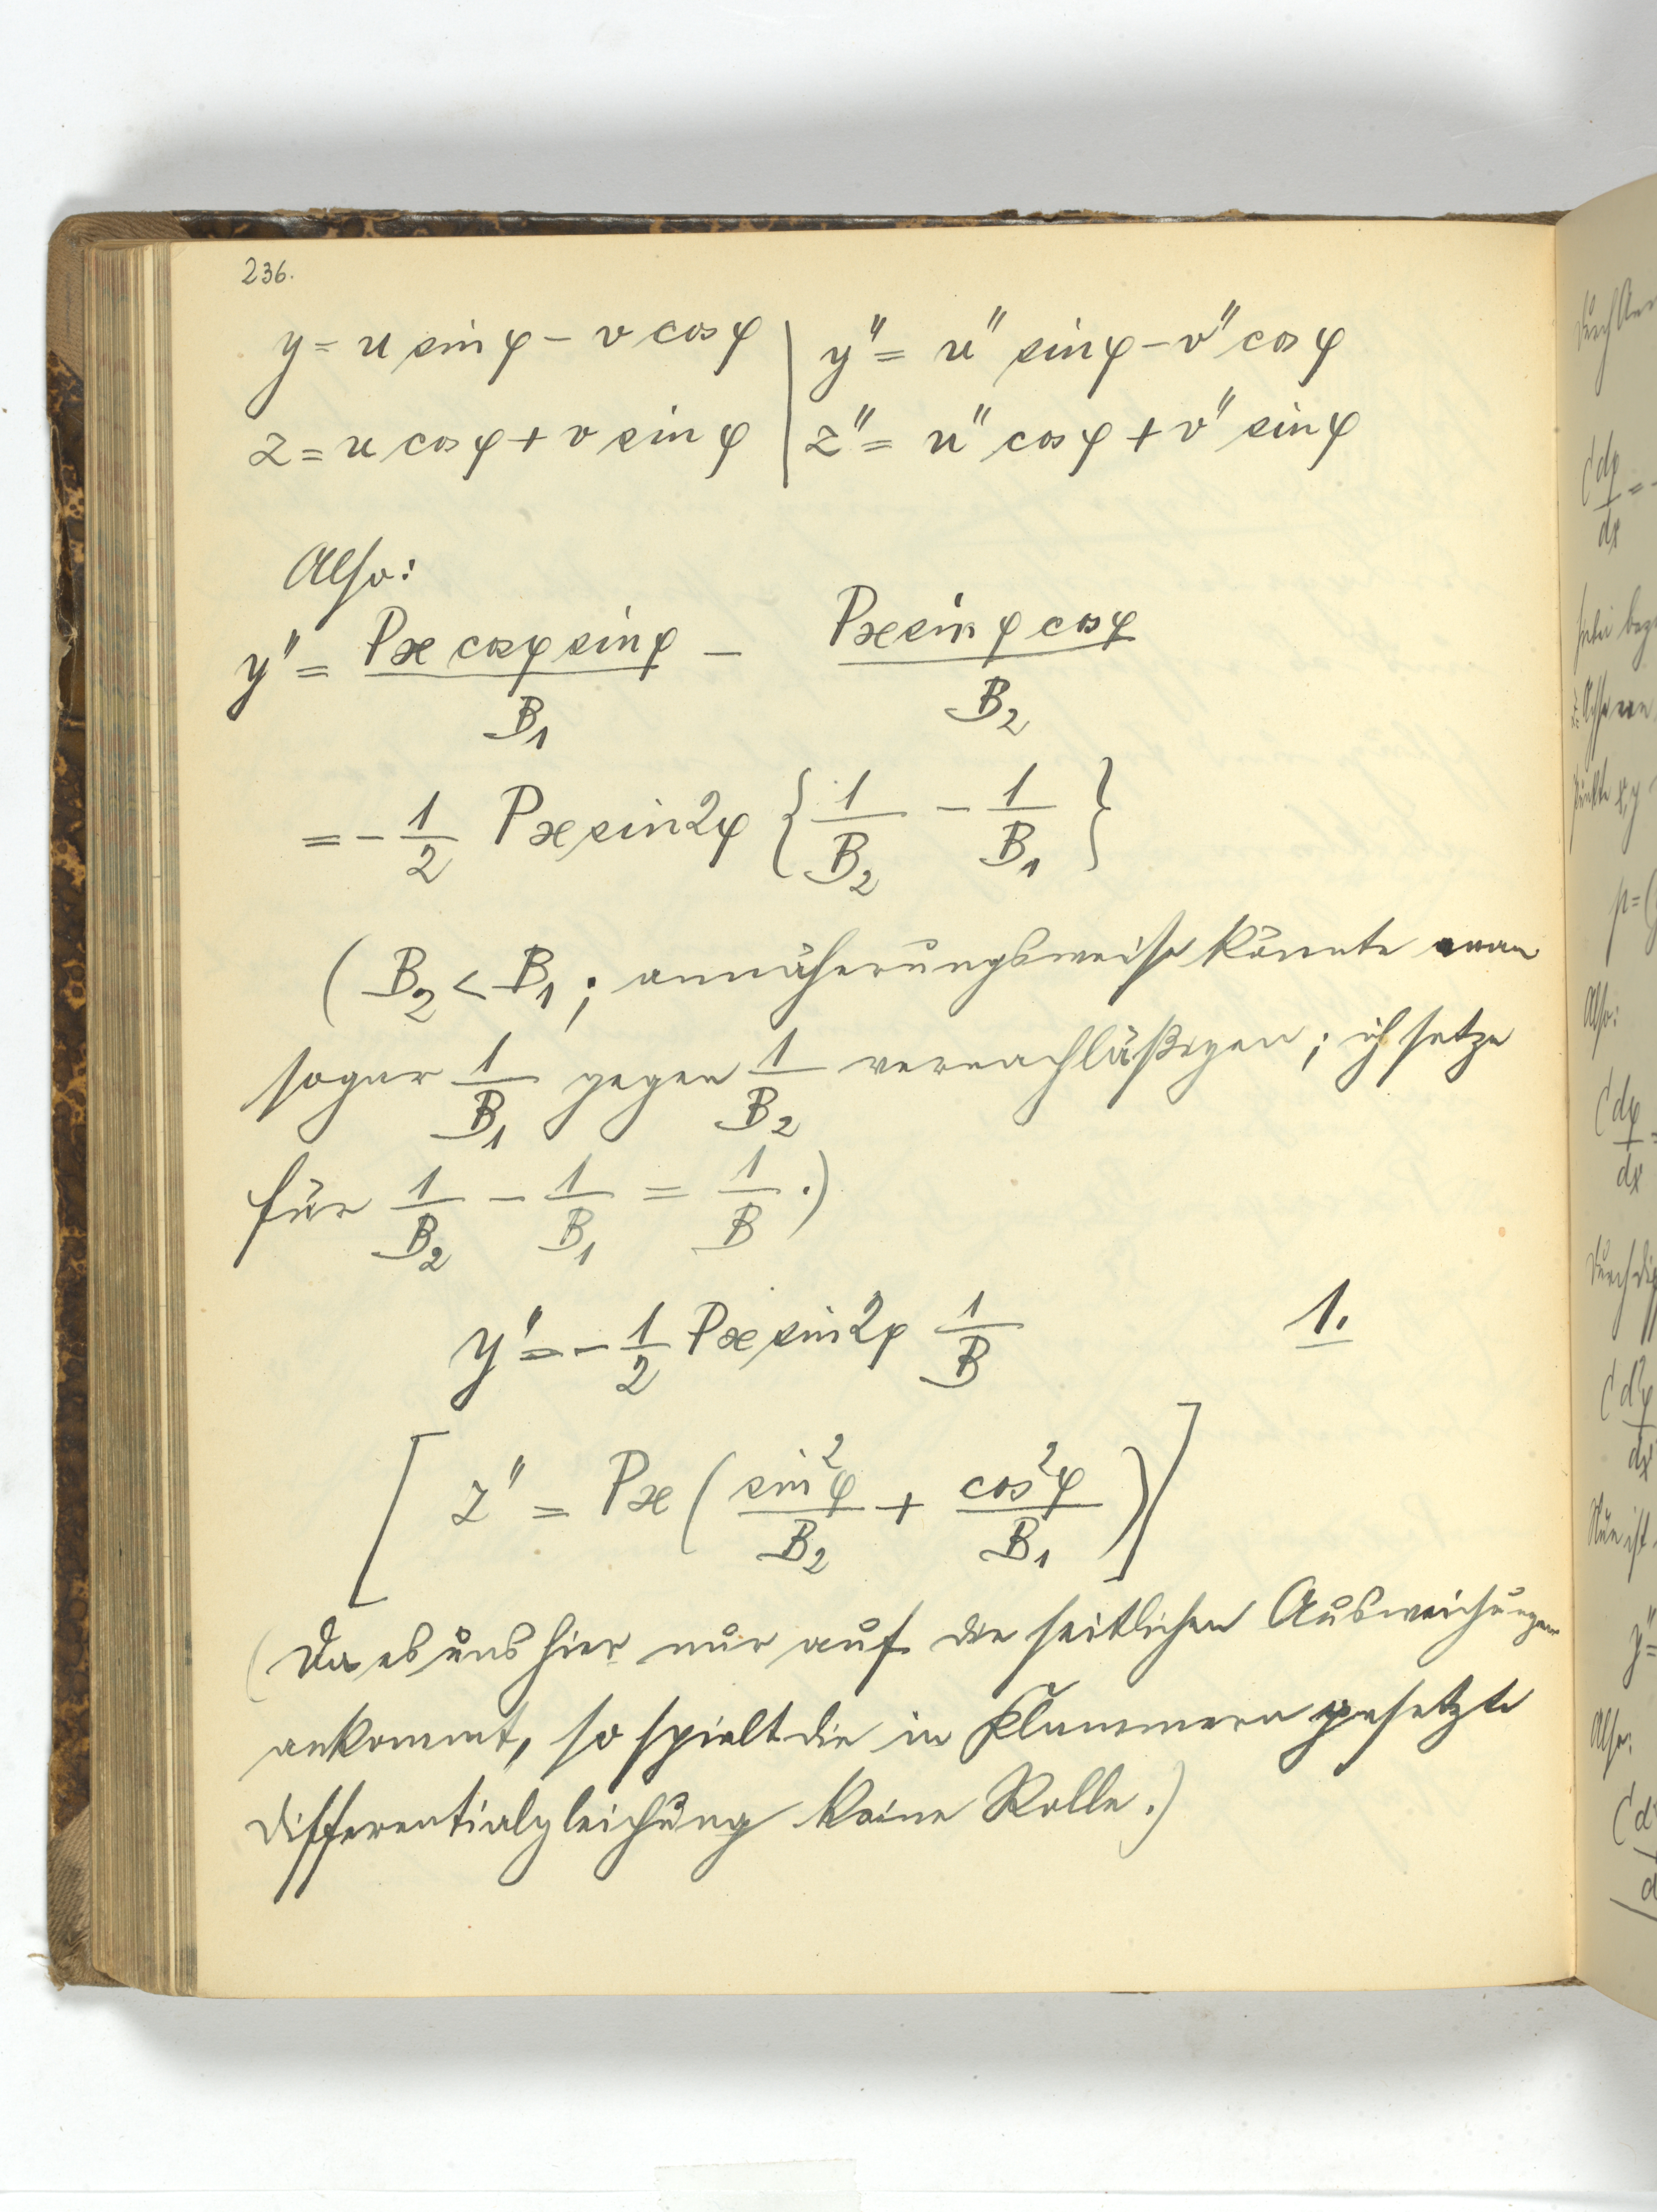 236.
y = u sin φ − v cos φ | y'' = u'' sin φ − v'' cos φ
z = u cos φ + v sin φ | z'' = u'' cos φ + v'' sin φ
Also:
y'' = Px cos φ sin φ / B₁ − Px sin φ cos φ / B₂
= − 1/2 Px sin 2φ { 1/B₂ − 1/B₁ }
( B₂ < B₁ ; annäherungsweise könnte man
sogar 1/B₁ gegen 1/B₂ vernachläßigen ; ich setze
für 1/B₂ − 1/B₁ = 1/B .)
y'' = − 1/2 Px sin 2φ 1/B 1.
[ z'' = Px ( sin²φ / B₂ + cos²φ / B₁ ) ]
( Da es uns hier nur auf die seitlichen Ausweichungen
ankommt, so spielt die in Klammern gesetzte
Differentialgleichung keine Rolle .)